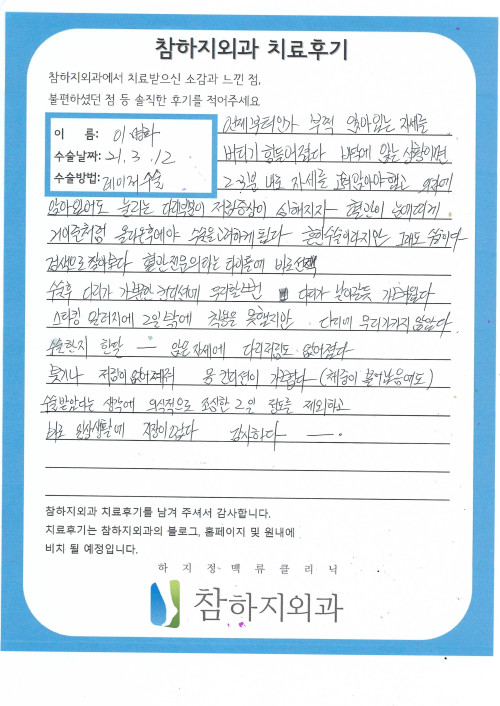 참하지외과 치료후기
참하지외과에서 치료받으신 소감과 느낀 점,
불편하셨던 점 등 솔직한 후기를 적어주세요
이 름: 이
수술날짜: 21. 3. 12
수술방법: 레이저 수술
언제부터인가 부쩍 앉아있는 자세를
버티기 힘들어졌다 바닥에 앉는 상황이면
2~3분 내로 자세를 고쳐앉아야했고 의자에
앉아있어도 눌리는 다리부분이 저림증상이 심해지자 혈관이
거미줄처럼 올라온후에야 수술을 고려하게 됐다 흔한수술이라지만 그래도 수술이다
검색으로 찾아봤다 혈관전문의라는 타이틀에 바로선택
수술후 다리가 가뿐한 컨디션에 다리가 날아갈듯 가벼웠다
스타킹 압력지에 2일밖에 착용을 못했지만 다리에 무리가가지 않았다
수술한지 한달 — 앉은자세에 다리저림도 없어졌다
붓거나 저림이 없어져 몸 컨디션이 가볍다 (체중이 불어났음에도)
수술받았다는 생각에 의식적으로 조심한 2일 정도를 제외하고
바로 일상생활에 지장이없다 감사하다 —.
참하지외과 치료후기를 남겨 주셔서 감사합니다.
치료후기는 참하지외과의 블로그, 홈페이지 및 원내에
비치 될 예정입니다.
하지정맥류클리닉
참하지외과